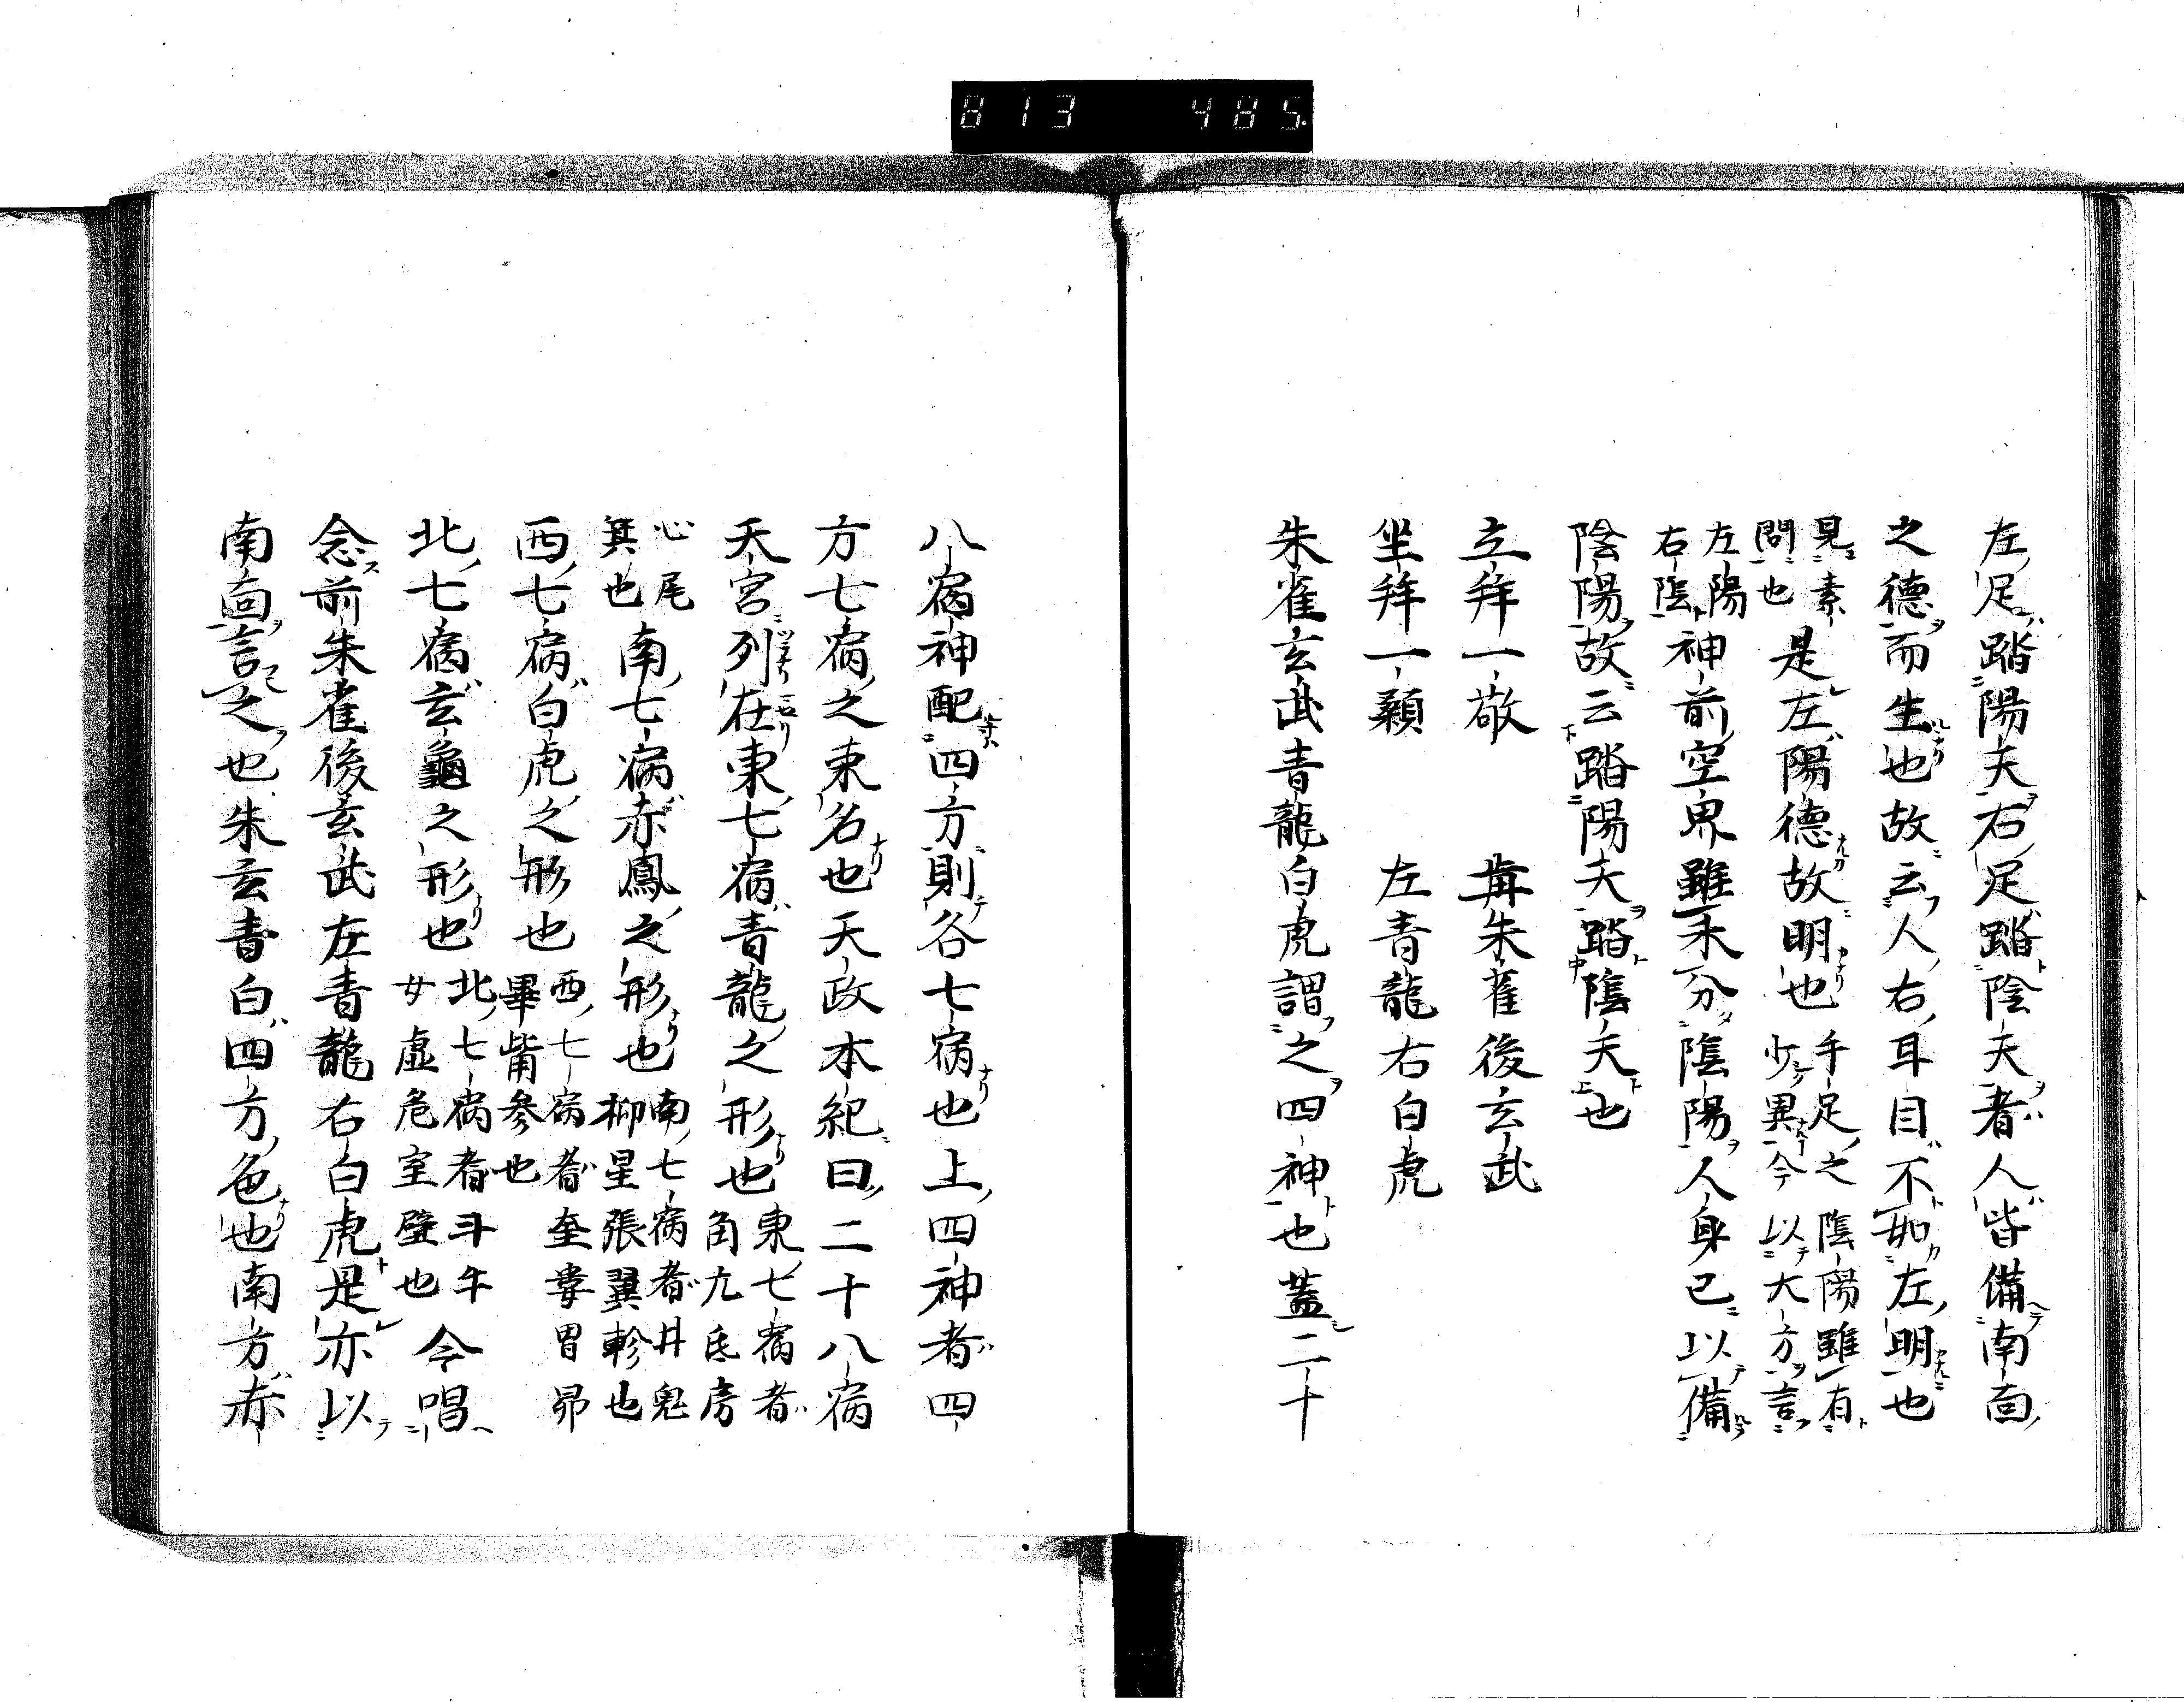 813 485
左足踏陽夫右足踏陰夫者人皆備南面
之德而生也故云人右耳目不如左明也
見素
問也
是左陽德故明也
手足之陰陽雖有
少異今以大方言
左陽
右陰
神前空畁雖未分陰陽人身已以備
陰陽故云踏陽夫踏陰夫也
立拜一敬 前朱雀後玄武
坐拜一顙 左青龍右白虎
朱雀玄武青龍白虎謂之四神也蓋二十
八宿神配四方則各七宿也上四神者四
方七宿之束名也天政本紀曰二十八宿
天宮列在東七宿青龍之形也
東七宿者
角亢氐房
心尾
箕也
南七宿赤鳳之形也
南七宿者井鬼
柳星張翼軫也
西七宿白虎之形也
西七宿者奎婁胃昴
畢觜參也
北七宿玄龜之形也
北七宿者斗牛
女虛危室壁也
今唱
念前朱雀後玄武左青龍右白虎是亦以
南面言之也朱玄青白四方色也南方赤